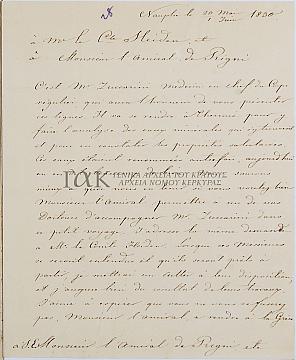 Nauplie le 20 Mai / 1 Juin 1830
à Mr le Cte Heiden et
à Monsieur l'Amiral de Rigni
C'est Mr Zuccarini Médecin en chef du Corps
régulier qui aura l'honneur de vous présenter
ces lignes. Il va se rendre à Thermia pour y
faire l'analyse des eaux minérales qui s'y trouvent
et pour en constater les propriétés salutaires.
Ces eaux étaient autrefois, aujourd'hui
ΓΑΚ ΓΕΝΙΚΑ ΑΡΧΕΙΑ ΤΟΥ ΚΡΑΤΟΥΣ
ΑΡΧΕΙΑ ΝΟΜΟΥ ΚΕΡΚΥΡΑΣ
Monsieur l'Amiral, permettre à un de vos
Docteurs d'accompagner Mr Zuccarini dans
ce petit voyage. J'adresse la même demande
à Mr le Comte Heiden. Lorsque ces Messieurs
se seront entendus et qu'ils seront prêts à
partir, je mettrai un à leur disposition,
et j'augure bien du résultat de leurs travaux.
J'aime à espérer que vous ne
pas, Monsieur l'Amiral, à rendre à la Grèce
à S.E. Monsieur l'Amiral de Rigni etc